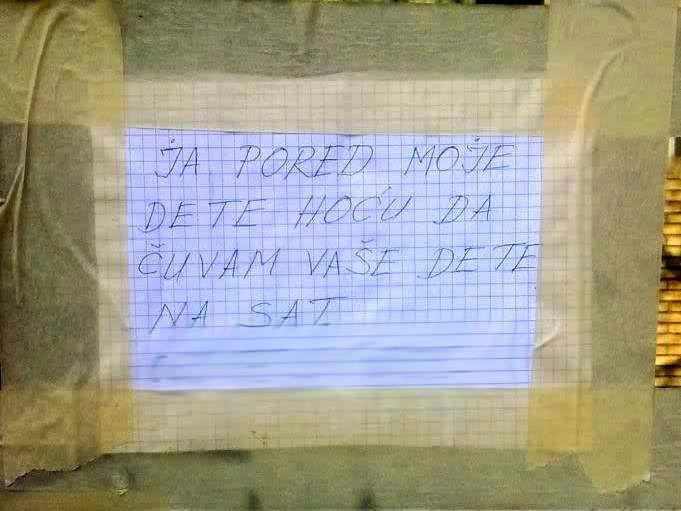 JA PORED MOJE
DETE HOĆU DA
ČUVAM VAŠE DETE
NA SAT